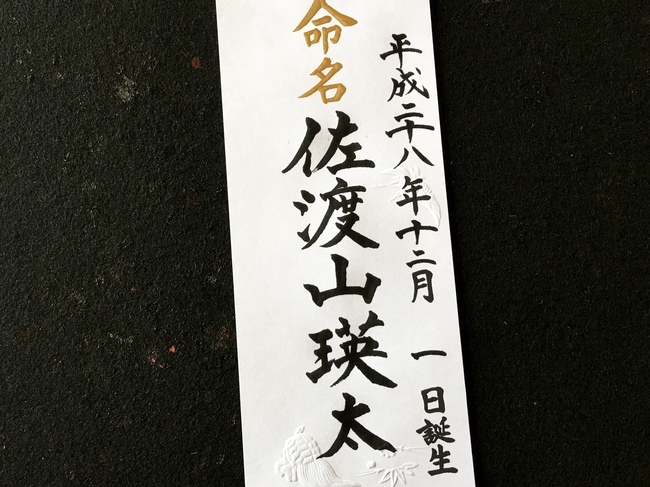 平成二十八年十二月一日誕生
命名
佐渡山瑛太